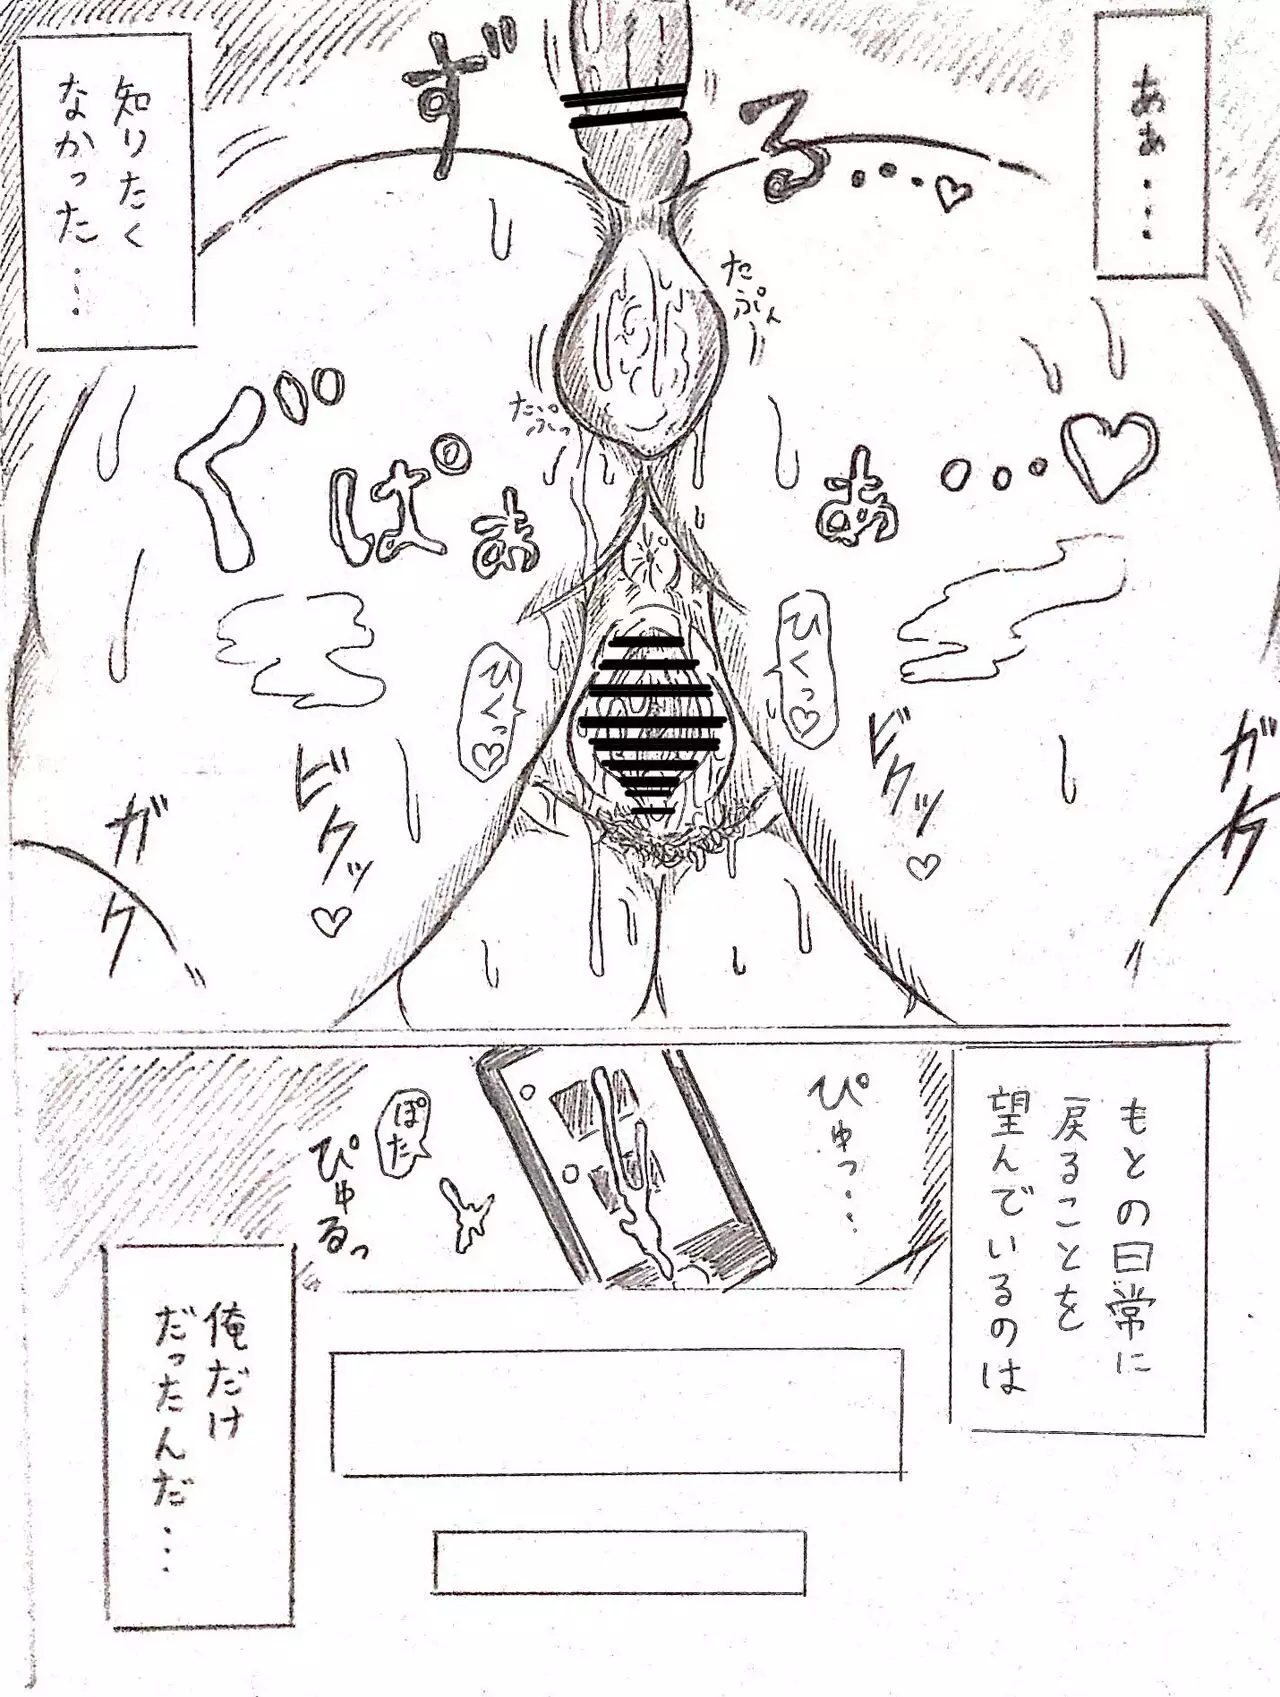 ああ…
ず
る…♡
知りたく
なかった…
たぷん
たぷっ
ぐぱぁ
あ…♡
ひくっ♡
ひくっ♡
ビクッ♡
ビクッ♡
ガク
ガク
もとの日常に
戻ることを
望んでいるのは
ぴゅっ…
ぽた
ぴゅるっ
俺だけ
だったんだ…